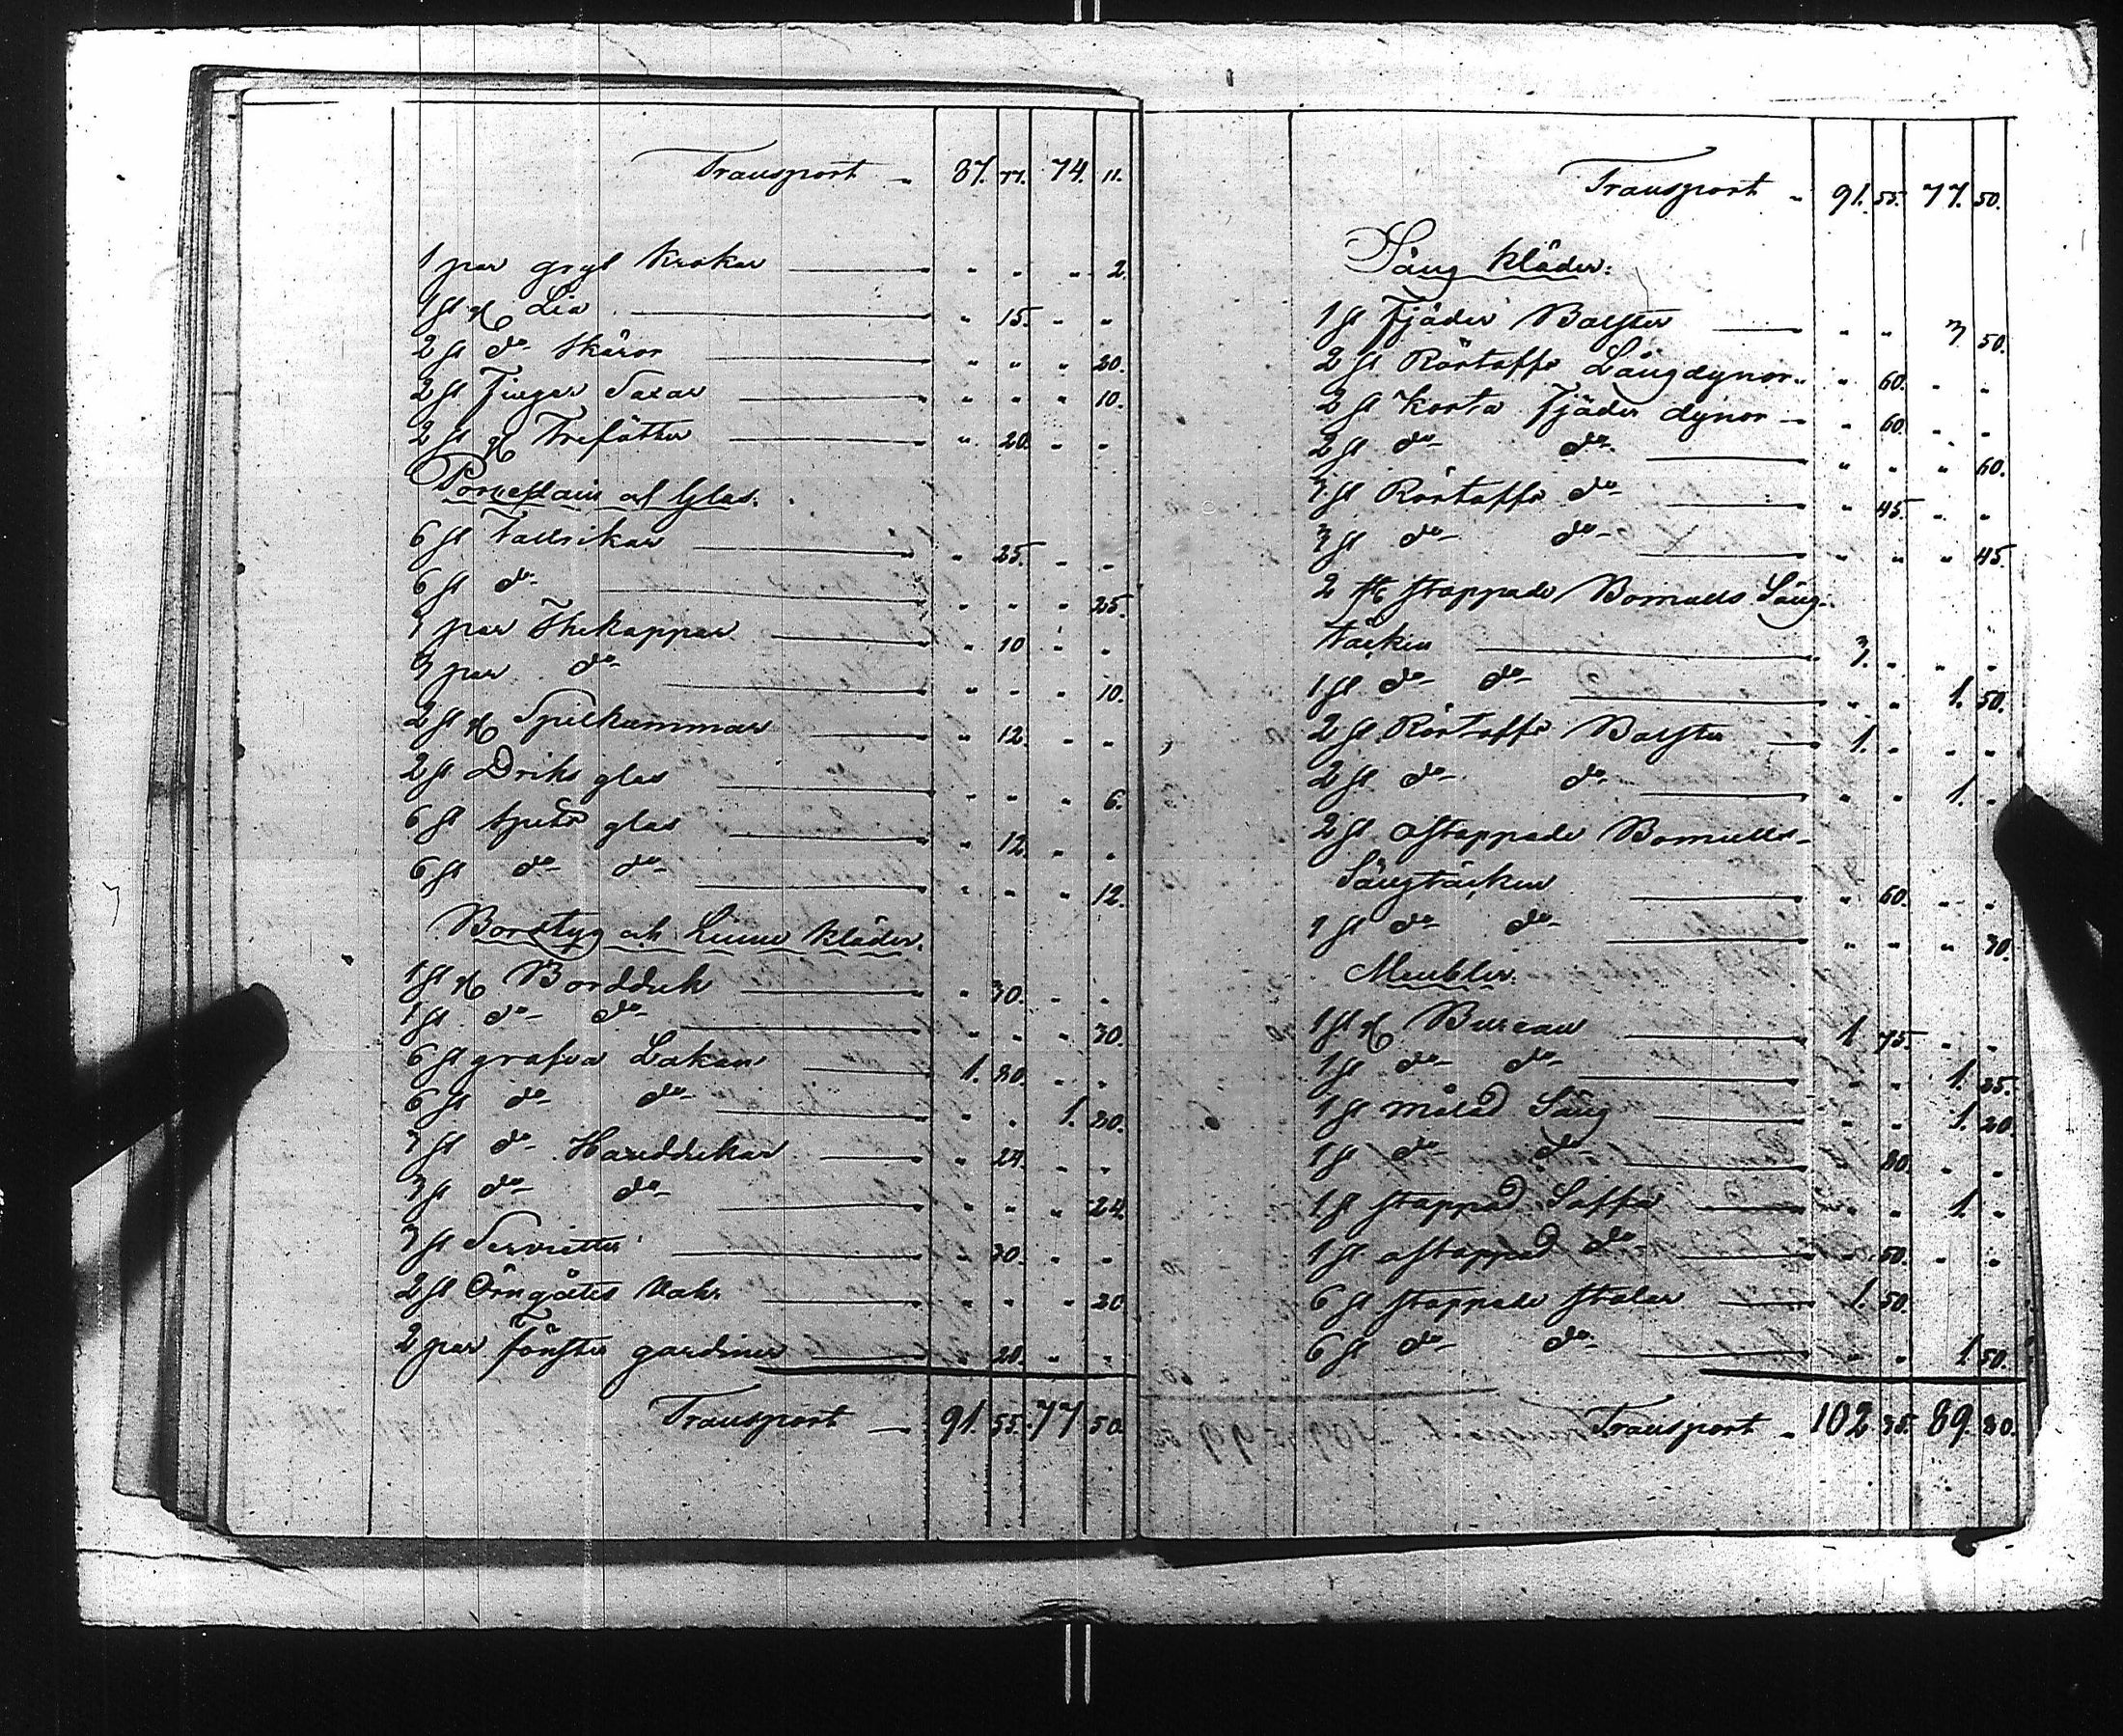 Transport - 87. 77. 74. 11.
1 par gryt krokar " " " 2.
1 st Lia " 15. " "
2 st do Skäror " " " 20.
2 st Finger Saxar " " " 10.
2 st Trefötter " 20. " "
Porcellain af Glas.
6 st Tallrikar " 25. " "
6 st do " " " 25.
3 par Thekoppar " 10 " "
3 par do " " " 10.
2 st Spilkummar " 12. " "
2 st Driks glas " " " 6.
6 st Spets glas " 12. " "
6 st do do " " " 12.
Bordstyg och Linne kläder.
1 st Bordduk " 30. " "
1 st do do " " " 30.
6 st grofva Lakan 1. 80. " "
6 st do do " " 1. 80.
3 st do Handdukar " 24. " "
3 st do do " " " 24.
3 st Servietter " 30. " "
2 st Örngåtts " " " 20
2 par Fönster gardiner " 20. " "
Transport - 91. 55. 77 50.
Transport - 91. 55. 77. 50.
Säng kläder:
1 st Fjäder Bolster " " 3 50.
2 st Rörtoffs Långdynor " 60. " "
2 st Korta Fjäder dynor " 60. " "
2 st do do " " " 60.
3 st Rörtoffs do " 45. " "
3 st do do " " " 45.
2 st stoppade Bomulls Säng-
täcken 3. " " "
1 st do do " " 1. 50.
2 st Rörtoffs Bolster 1. " " "
2 st do do " " 1. "
2 st ostoppade Bomulls-
Sängtäcken " 60. " "
1 st do do " " " 30.
Meubler.
1 st Bureau 1 75. " "
1 st do do " " 1. 25.
1 st målad Säng " " 1. 20.
1 st do do " 80. " "
1 st stoppad Soffa " " 1. "
1 st ostoppad do " 50. " "
6 st stoppade stolar 1. 50. " "
6 st do do " " 1. 50.
Transport - 102 35. 89. 80.